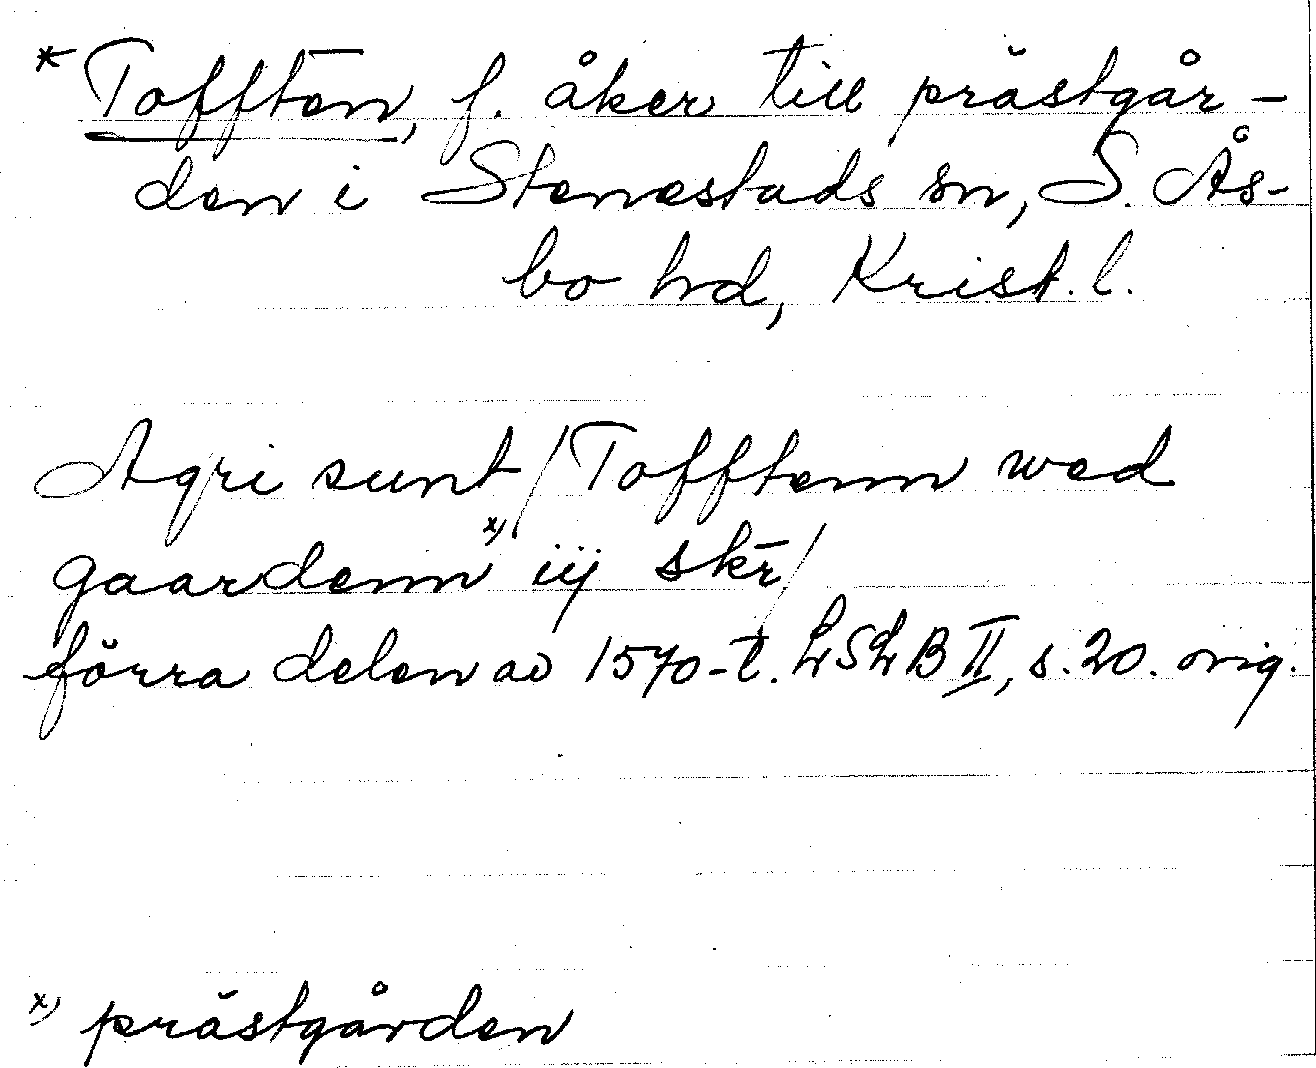 * Tofften, f. åker till prästgår-
den i Stenestads sn, S. Ås-
bo hd, Krist. l.
Agri sunt / Tofftenn wed
gaardenn x) iij skr̄ /
förra delen av 1570-t. LSLB II, s. 20. orig.
x) prästgården